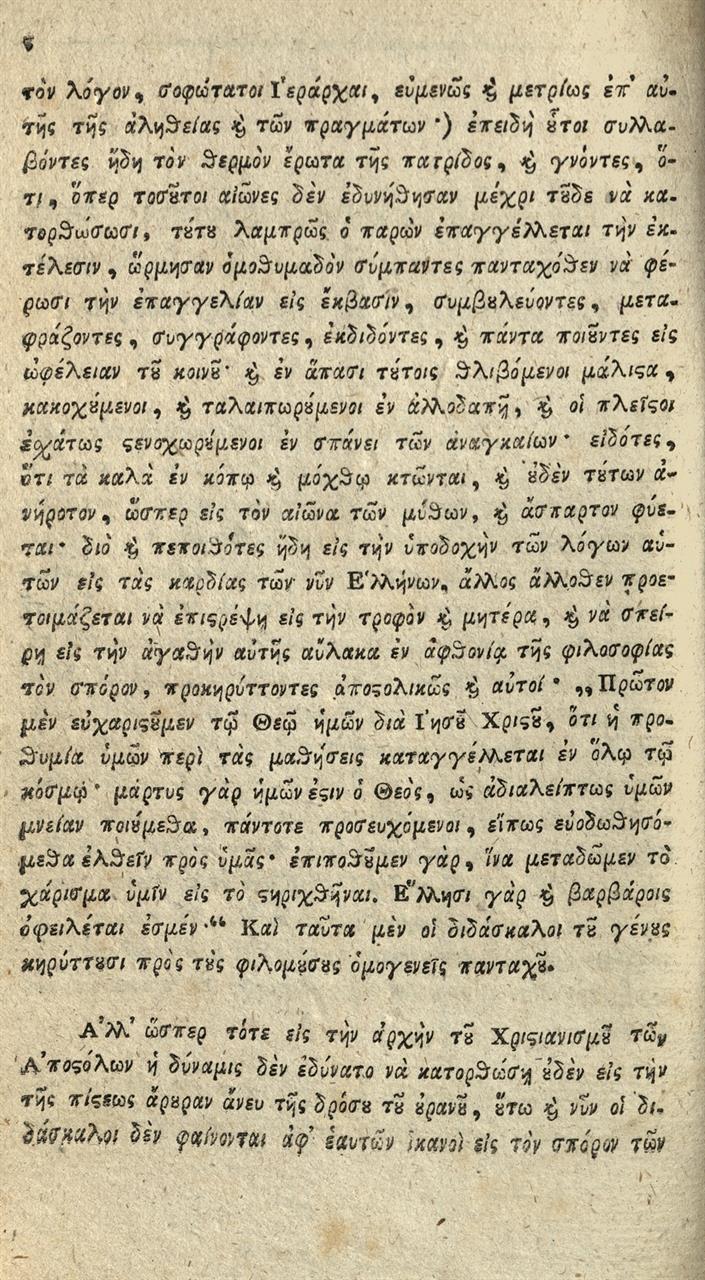 ϛ
τὸν λόγον, σοφώτατοι Ἱεράρχαι, εὐμενῶς ϗ μετρίως ἐπ' αὐ-
τῆς τῆς ἀληθείας ϗ τῶν πραγμάτων·) ἐπειδὴ ȣ̃τοι συλλα-
βόντες ἤδη τὸν θερμὸν ἔρωτα τῆς πατρίδος, ϗ γνόντες, ὅ-
τι, ὅπερ τοσȣ̃τοι αἰῶνες δὲν ἐδυνήθησαν μέχρι τȣ̃δε νὰ κα-
τορθώσωσι, τȣ́τȣ λαμπρῶς ὁ παρὼν ἐπαγγέλλεται τὴν ἐκ-
τέλεσιν, ὥρμησαν ὁμοθυμαδὸν σύμπαντες πανταχόθεν νὰ φέ-
ρωσι τὴν ἐπαγγελίαν εἰς ἔκβασιν, συμβȣλεύοντες, μετα-
φράζοντες, συγγράφοντες, ἐκδιδόντες, ϗ πάντα ποιȣ̃ντες εἰς
ὠφέλειαν τȣ̃ κοινȣ̃· ϗ ἐν ἅπασι τȣ́τοις θλιβόμενοι μάλιϛα,
κακοχȣ́μενοι, ϗ ταλαιπωρȣ́μενοι ἐν ἀλλοδαπῇ, ϗ οἱ πλεῖϛοι
ἐχάτως ϛενοχωρȣ́μενοι ἐν σπάνει τῶν ἀναγκαίων· εἰδότες,
ὅτι τὰ καλὰ ἐν κόπῳ ϗ μόχθῳ κτῶνται, ϗ ȣ̓δὲν τȣ́των ἀ-
νήροτον, ὥσπερ εἰς τὸν αἰῶνα τῶν μύθων, ϗ ἄσπαρτον φύε-
ται· διὸ ϗ πεποιθότες ἤδη εἰς τὴν ὑποδοχὴν τῶν λόγων αὑ-
τῶν εἰς τὰς καρδίας τῶν νῦν Ἑλλήνων, ἄλλος ἄλλοθεν προε-
τοιμάζεται νὰ ἐπιϛρέψῃ εἰς τὴν τροφὸν ϗ μητέρα, ϗ νὰ σπεί-
ρῃ εἰς τὴν ἀγαθὴν αὐτῆς αὔλακα ἐν ἀφθονίᾳ τῆς φιλοσοφίας
τὸν σπόρον, προκηρύττοντες ἀποϛολικῶς ϗ αὐτοί· „Πρῶτον
μὲν εὐχαριϛȣ̃μεν τῷ Θεῷ ἡμῶν διὰ Ἰησȣ̃ Χριϛȣ̃, ὅτι ἡ προ-
θυμία ὑμῶν περὶ τὰς μαθήσεις καταγγέλλεται ἐν ὅλῳ τῷ
κόσμῳ· μάρτυς γὰρ ἡμῶν ἐϛιν ὁ Θεὸς, ὡς ἀδιαλείπτως ὑμῶν
μνείαν ποιȣ́μεθα, πάντοτε προσευχόμενοι, εἴπως εὐοδωθησό-
μεθα ἐλθεῖν πρὸς ὑμᾶς· ἐπιποθȣ̃μεν γὰρ, ἵνα μεταδῶμεν τὸ
χάρισμα ὑμῖν εἰς τὸ ϛηριχθῆναι. Ἕλλησι γὰρ ϗ βαρβάροις
ὀφειλέται ἐσμέν·“ Καὶ ταῦτα μὲν οἱ διδάσκαλοι τȣ̃ γένȣς
κηρύττȣσι πρὸς τȣ̀ς φιλομȣ́σȣς ὁμογενεῖς πανταχȣ̃.
Ἀλλ' ὥσπερ τότε εἰς τὴν ἀρχὴν τȣ̃ Χριϛιανισμȣ̃ τῶν
Ἀποϛόλων ἡ δύναμις δὲν ἐδύνατο νὰ κατορθώσῃ ȣ̓δὲν εἰς τὴν
τῆς πίϛεως ἄρȣραν ἄνευ τῆς δρόσȣ τȣ̃ ȣ̓ρανȣ̃, ȣ̔́τω ϗ νῦν οἱ δι-
δάσκαλοι δὲν φαίνονται ἀφ' ἑαυτῶν ἱκανοὶ εἰς τὸν σπόρον τῶν